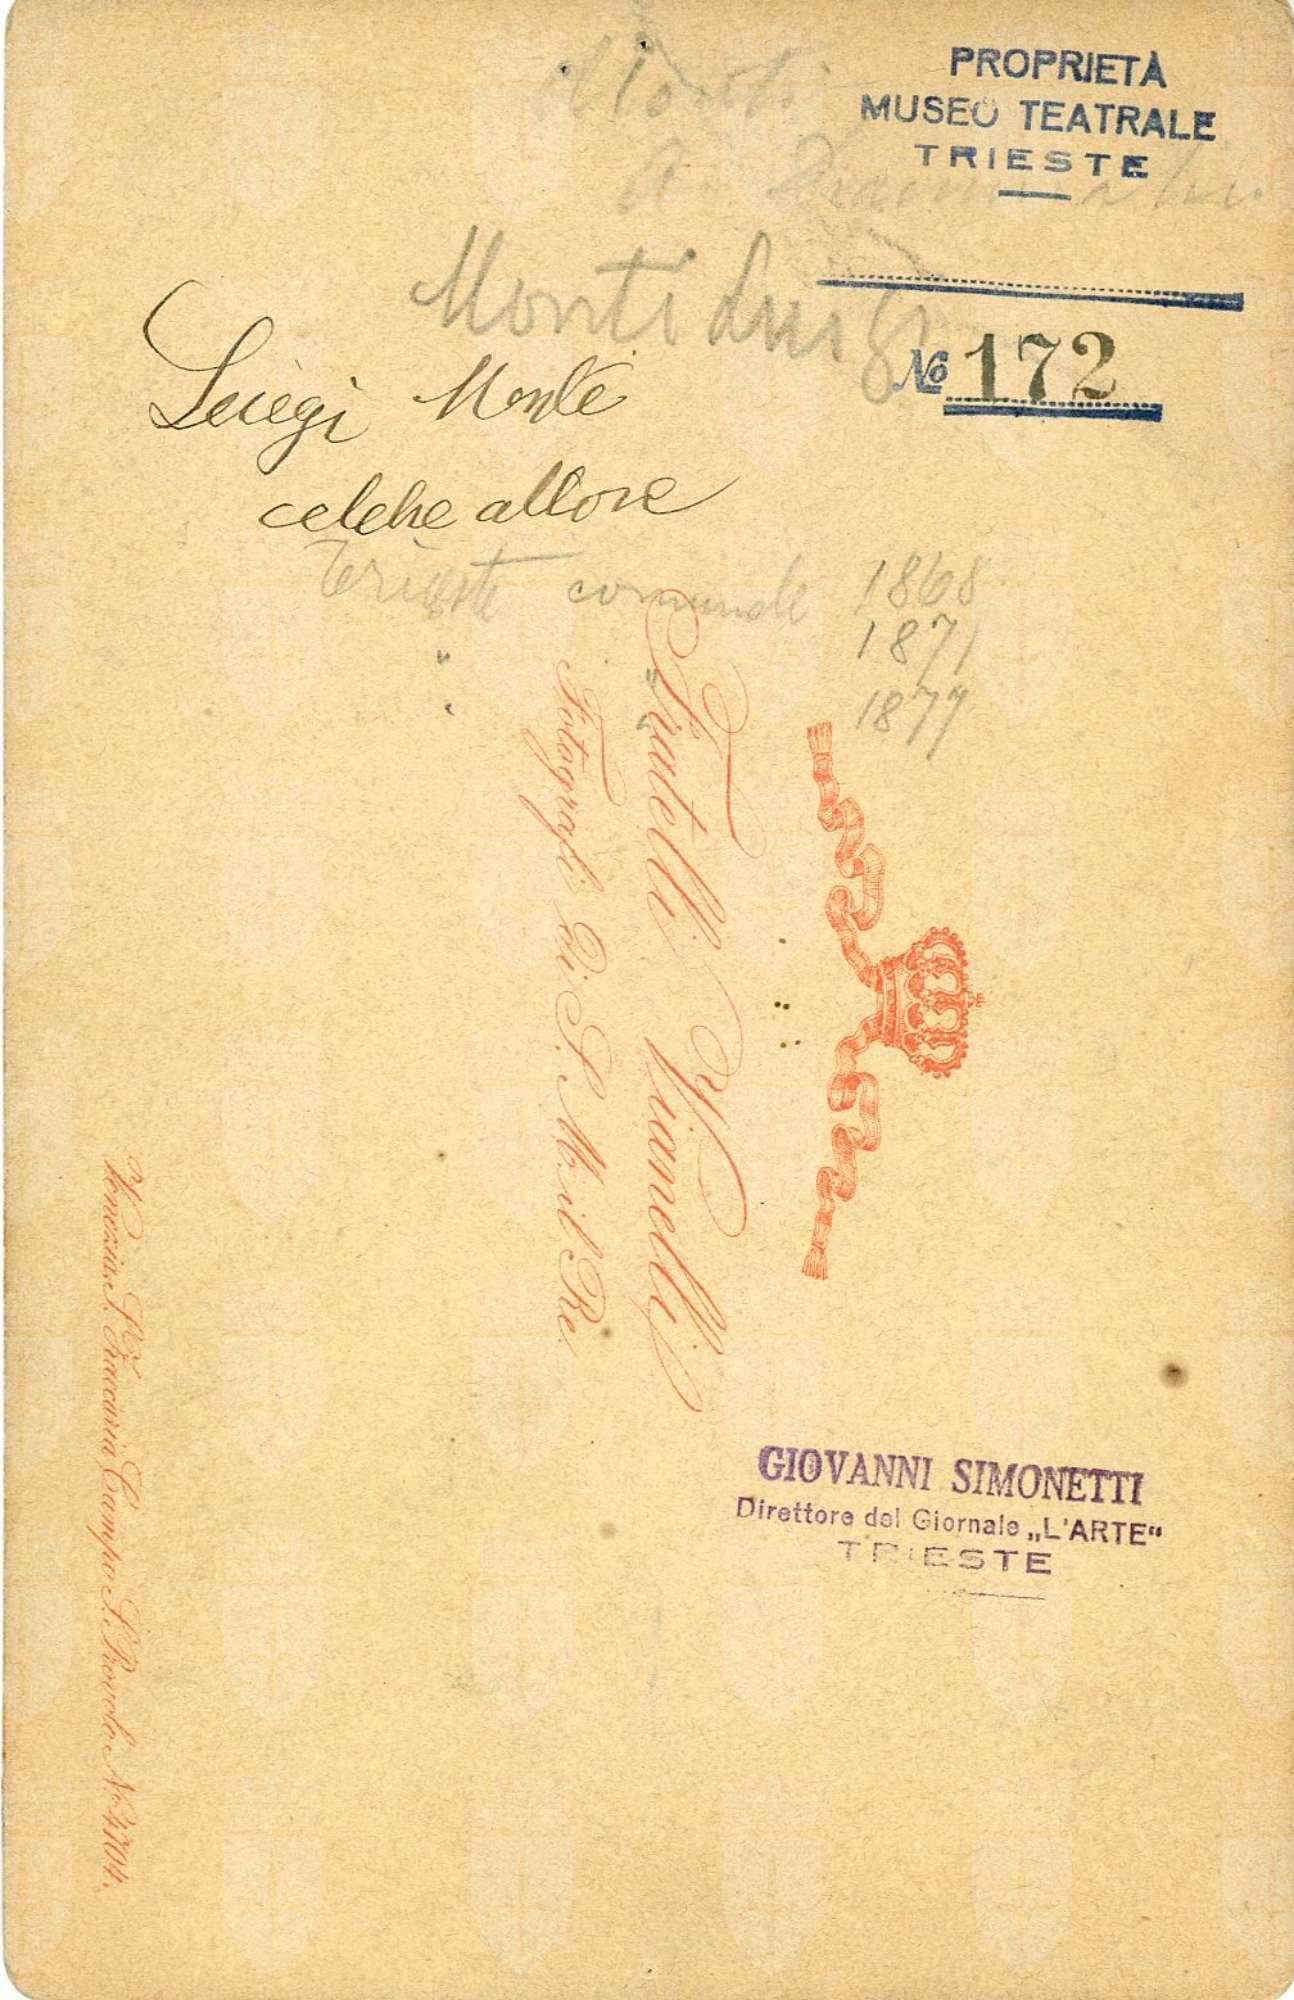 PROPRIETÀ
MUSEO TEATRALE
TRIESTE
Monti
Monti Luigi
No 172
Luigi Monti
celebre attore
Trieste comunale 1868
" " 1871
" " 1877
Fratelli Vianelli
Fotografi di S. M. il Re.
Venezia. S. Zaccaria Campo S. Provolo No. 4704.
GIOVANNI SIMONETTI
Direttore del Giornale „L'ARTE“
TRIESTE